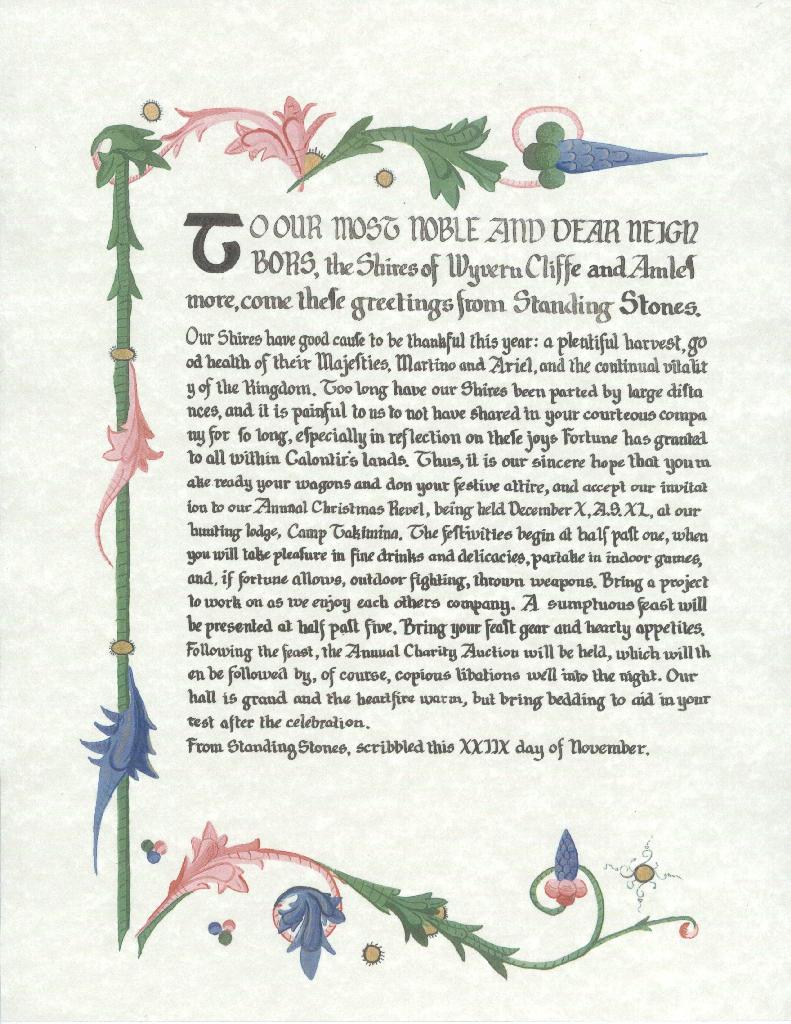 TO OUR MOST NOBLE AND DEAR NEIGH
BORS, the Shires of Wyvern Cliffe and Amleſ
more, come theſe greetings from Standing Stones.
Our Shires have good cauſe to be thankful this year: a plentiful harvest, go
od health of their Majeſties, Martino and Ariel, and the continual vitalit
y of the Kingdom. Too long have our Shires been parted by large diſta
nces, and it is painful to us to not have shared in your courteous compa
ny for ſo long, eſpecially in reflection on theſe joys Fortune has granted
to all within Calontir's lands. Thus, it is our sincere hope that you m
ake ready your wagons and don your feſtive attire, and accept our invitat
ion to our Annual Christmas Revel, being held December X, A.S. XL, at our
hunting lodge, Camp Takimina. The feſtivities begin at half paſt one, when
you will take pleaſure in fine drinks and delicacies, partake in indoor games,
and, if fortune allows, outdoor fighting, thrown weapons. Bring a project
to work on as we enjoy each others company. A sumptuous feast will
be presented at half paſt five. Bring your feaſt gear and hearty appetites.
Following the feast, the Annual Charity Auction will be held, which will th
en be followed by, of course, copious libations well into the night. Our
hall is grand and the heartfire warm, but bring bedding to aid in your
rest after the celebration.
From Standing Stones, scribbled this XXIIX day of November.